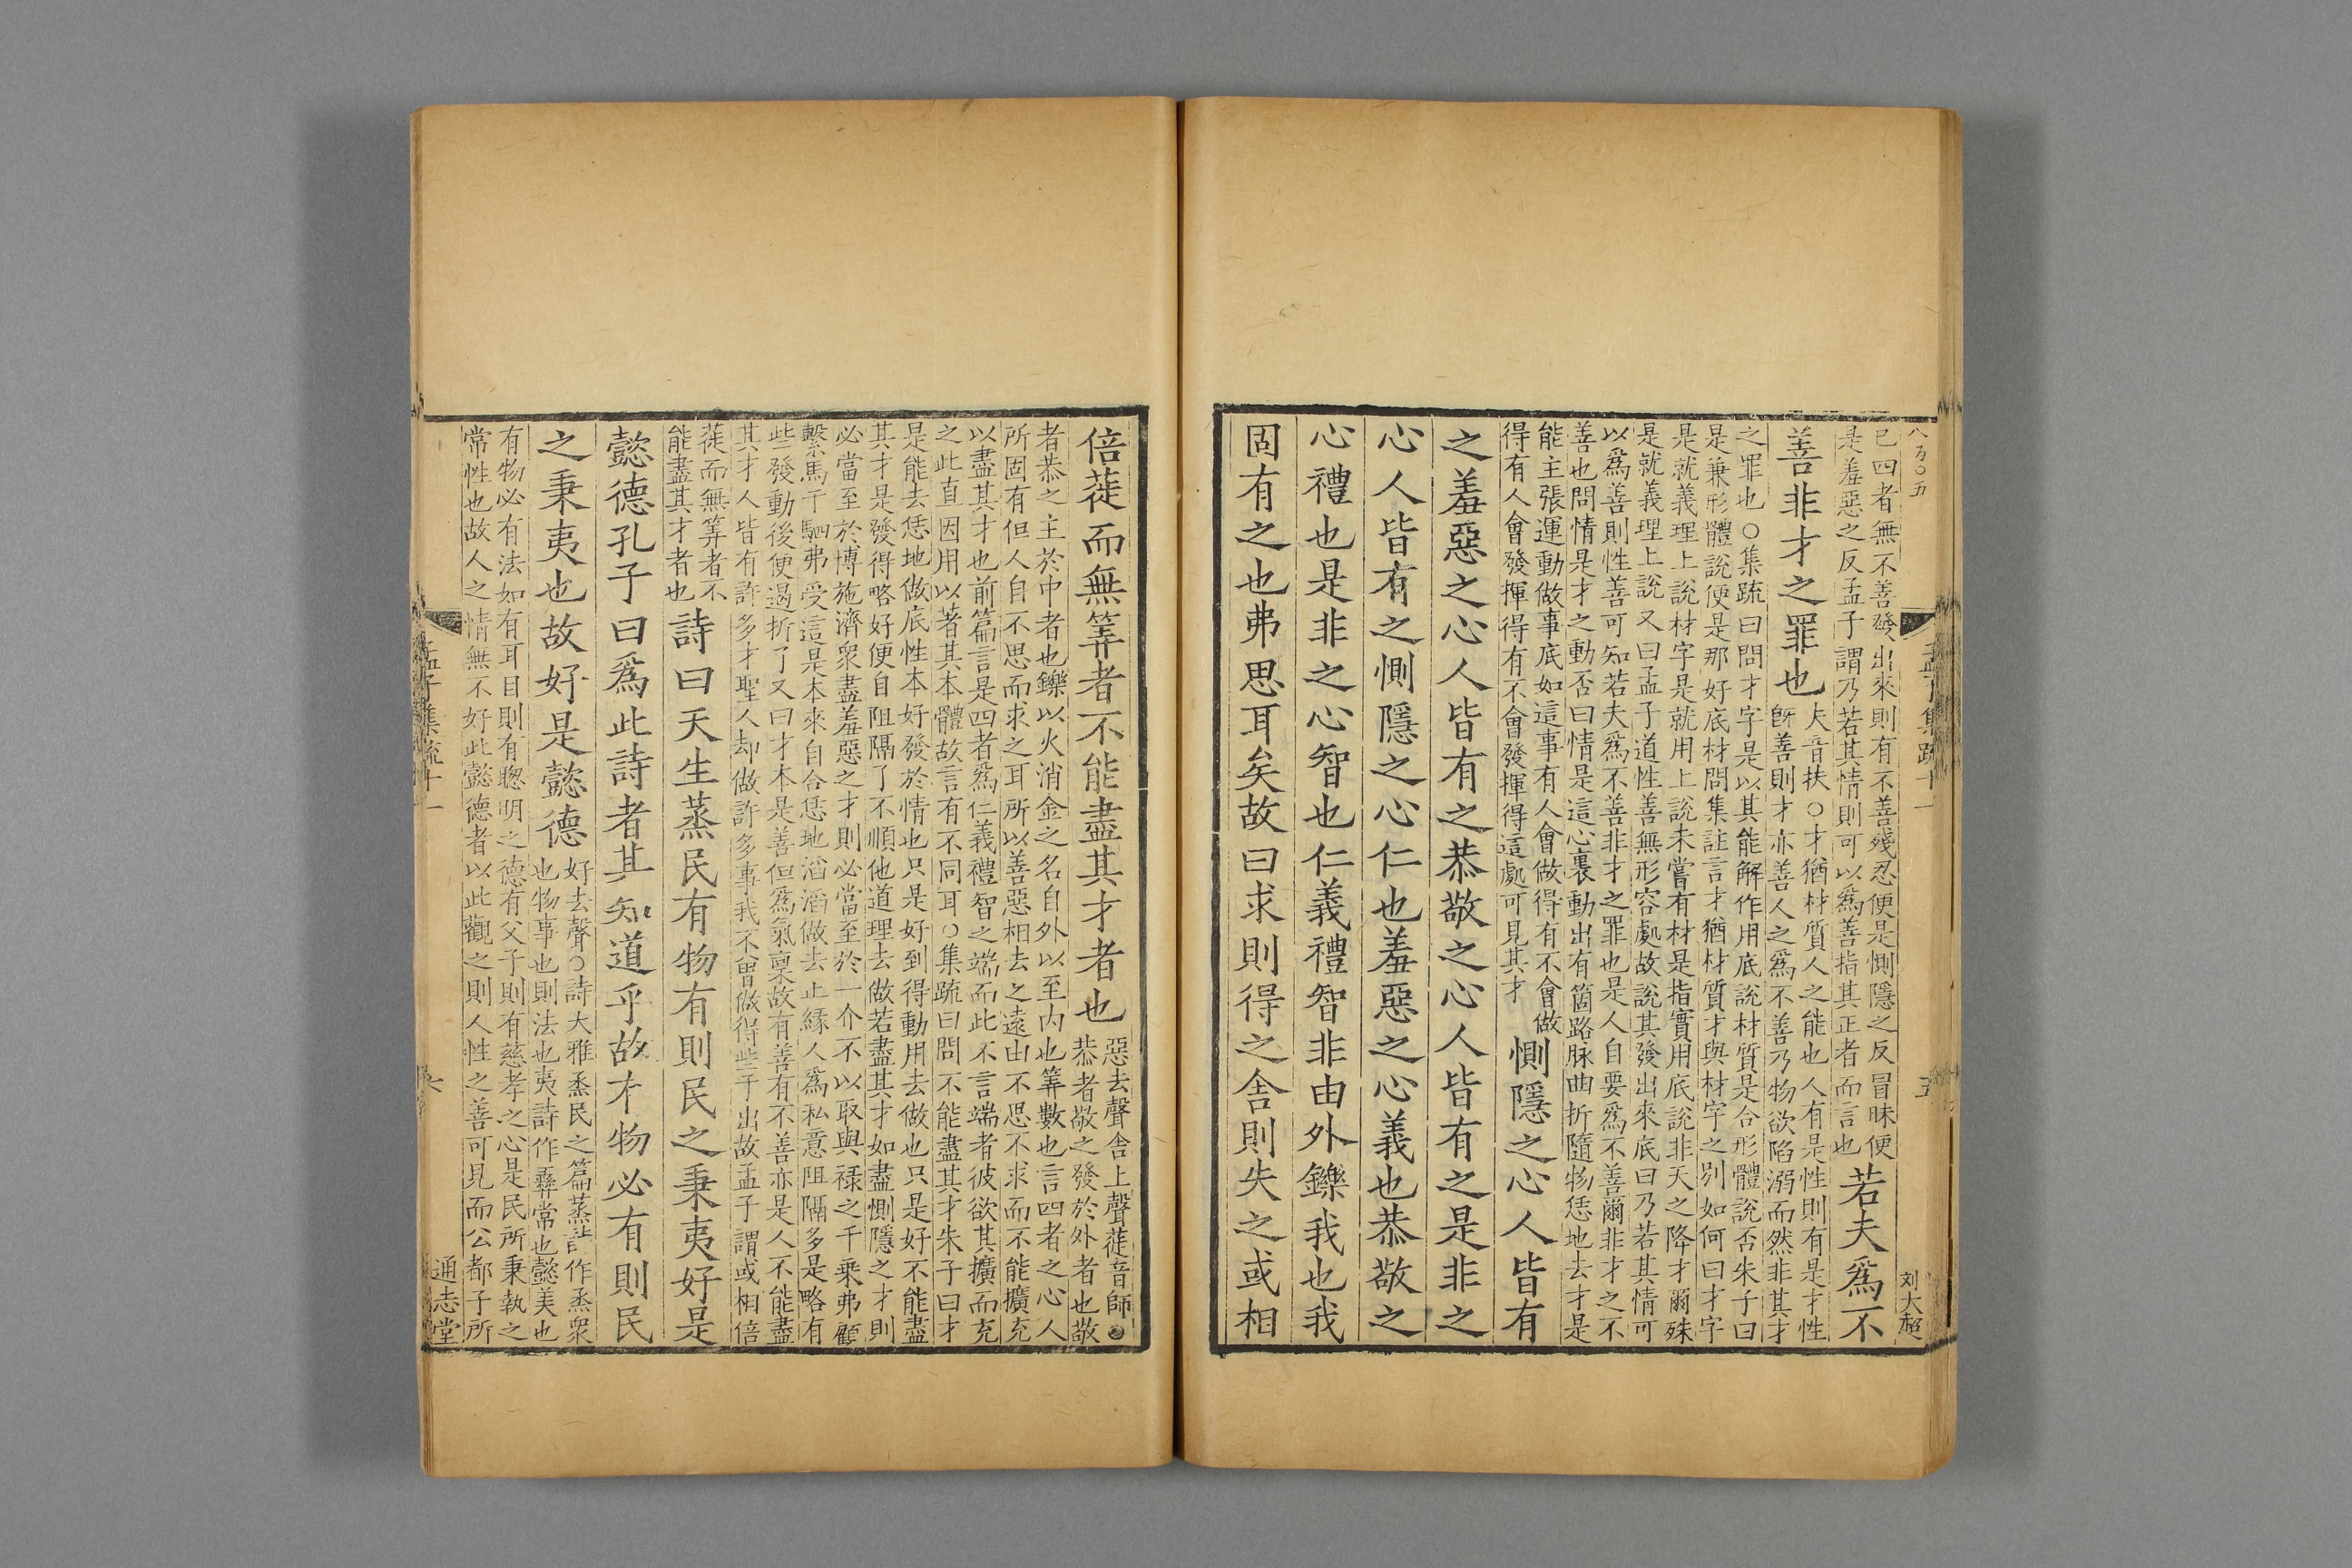 八百〇五
刘大超
孟子集疏十一
五
已四者無不善發出來則有不善殘忍便是惻隱之反冒昧便
是羞惡之反孟子謂乃若其情則可以為善指其正者而言也
若夫為不
善非才之罪也
夫音扶○才猶材質人之能也人有是性則有是才性
旣善則才亦善人之為不善乃物欲陷溺而然非其才
之罪也○集疏曰問才字是以其能解作用底說材質是合形體說否朱子曰
是兼形體說便是那好底材問集註言才猶材質才與材字之別如何曰才字
是就義理上說材字是就用上說未嘗有材是指實用底說非天之降才爾殊
是就義理上說又曰孟子道性善無形容處故說其發出來底曰乃若其情可
以為善則性善可知若夫為不善非才之罪也是人自要為不善爾非才之不
善也問情是才之動否曰情是這心裏動出有箇路脉曲折隨物恁地去才是
能主張運動做事底如這事有人會做得有不會做
得有人會發揮得有不會發揮得這處可見其才
惻隱之心人皆有
之羞惡之心人皆有之恭敬之心人皆有之是非之
心人皆有之惻隱之心仁也羞惡之心義也恭敬之
心禮也是非之心智也仁義禮智非由外鑠我也我
固有之也弗思耳矣故曰求則得之舍則失之或相
倍蓰而無筭者不能盡其才者也
惡去聲舍上聲蓰音師○
恭者敬之發於外者也敬
者恭之主於中者也鑠以火消金之名自外以至內也筭數也言四者之心人
所固有但人自不思而求之耳所以善惡相去之遠由不思不求而不能擴充
以盡其才也前篇言是四者為仁義禮智之端而此不言端者彼欲其擴而充
之此直因用以著其本體故言有不同耳○集疏曰問不能盡其才朱子曰才
是能去恁地做底性本好發於情也只是好到得動用去做也只是好不能盡
其才是發得略好便自阻隔了不順他道理去做若盡其才如盡惻隱之才則
必當至於博施濟衆盡羞惡之才則必當至於一介不以取與祿之千乘弗顧
繫馬千駟弗受這是本來自合恁地滔滔做去止緣人為私意阻隔多是略有
些發動後便遏折了又曰才本是善但為氣稟故有善有不善亦是人不能盡
其才人皆有許多才聖人却做許多事我不曾做得些子出故孟子謂或相倍
蓰而無筭者不
能盡其才者也
詩曰天生蒸民有物有則民之秉夷好是
懿德孔子曰為此詩者其知道乎故有物必有則民
之秉夷也故好是懿德
好去聲○詩大雅烝民之篇蒸詩作烝衆
也物事也則法也夷詩作彝常也懿美也
有物必有法如有耳目則有聰明之德有父子則有慈孝之心是民所秉執之
常性也故人之情無不好此懿德者以此觀之則人性之善可見而公都子所
孟子集疏十一
六
通志堂